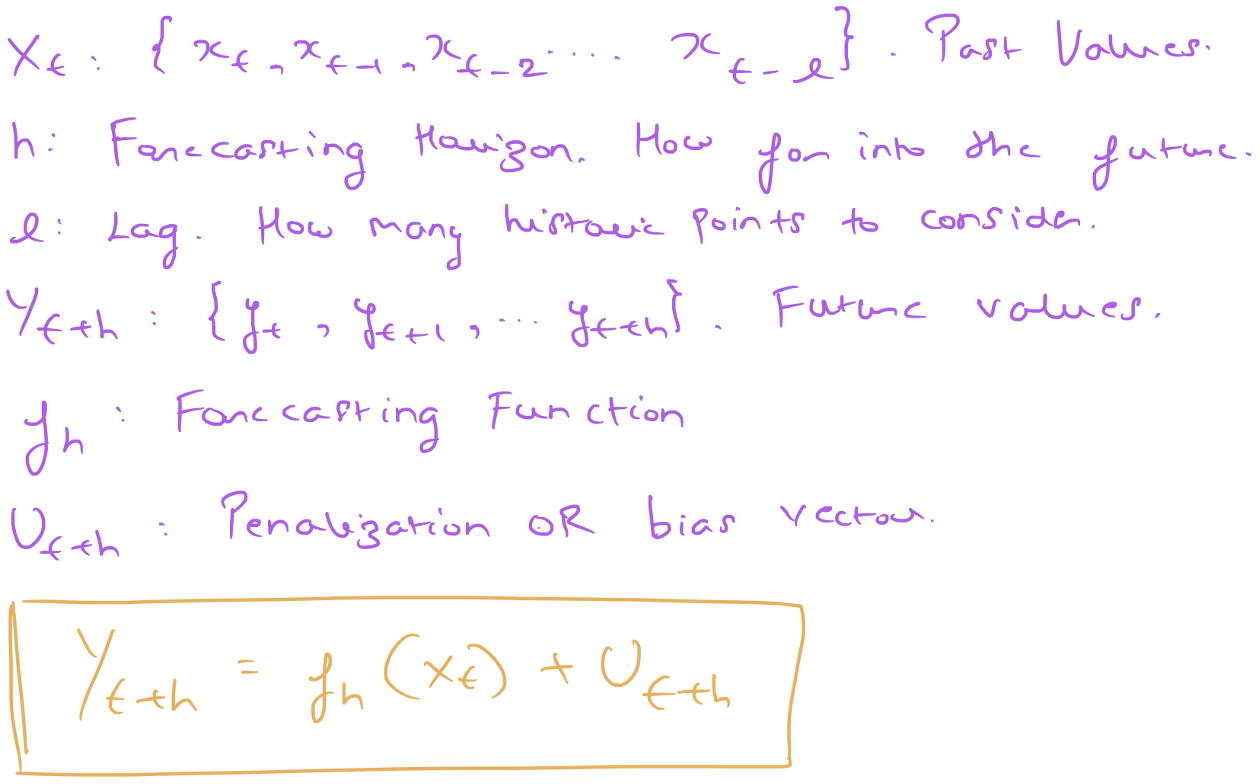 X_t : { x_t, x_{t-1}, x_{t-2} .... x_{t-l} }. Past Values.
h: Forecasting Horizon. How far into the future.
l: Lag. How many historic points to consider.
Y_{t+h} : { y_t, y_{t+1}, ... y_{t+h} }. Future values.
f_h : Forecasting Function
U_{t+h} : Penalization OR bias vector.
Y_{t+h} = f_h (X_t) + U_{t+h}